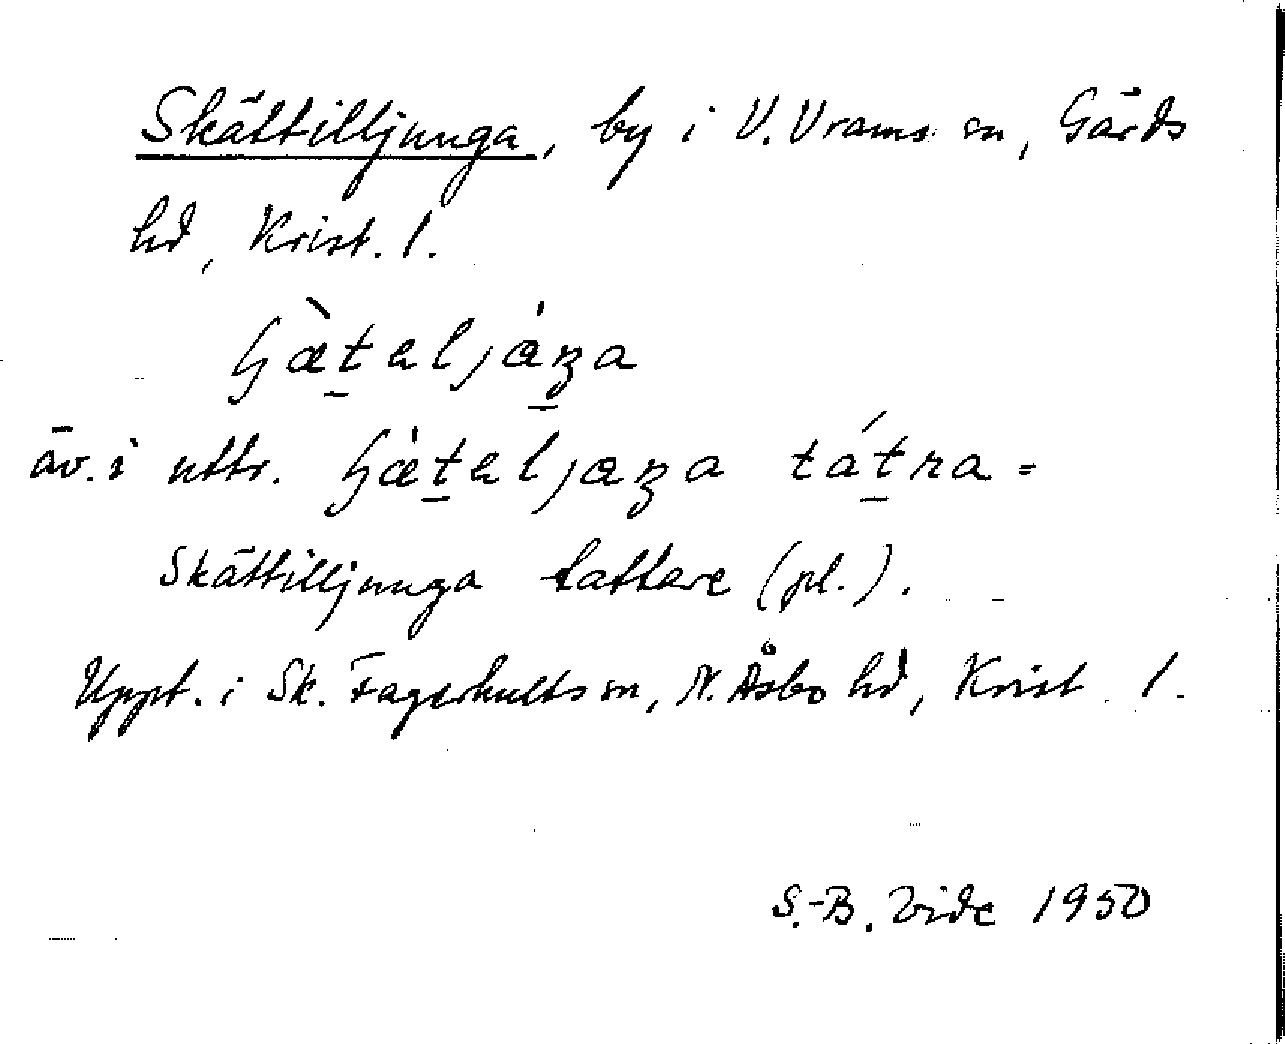 Skättilljunga, by i V. Vrams sn, Gärds
hd, Krist. l.
äv. i uttr.
Skättilljunga tattare (pl.).
Uppt. i Sk. Fagerhults sn, N. Åsbo hd, Krist l.
S.-B. Vide 1950